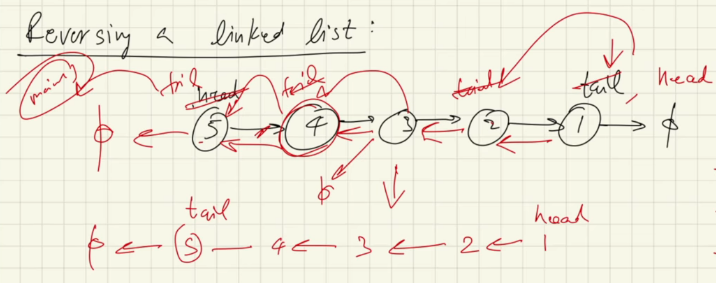 Reversing a linked list:
main
tail head tail tail tail head
φ ← 5 → 4 → 3 → 2 → 1 → φ
φ
tail head
φ ← 5 — 4 ← 3 ← 2 ← 1